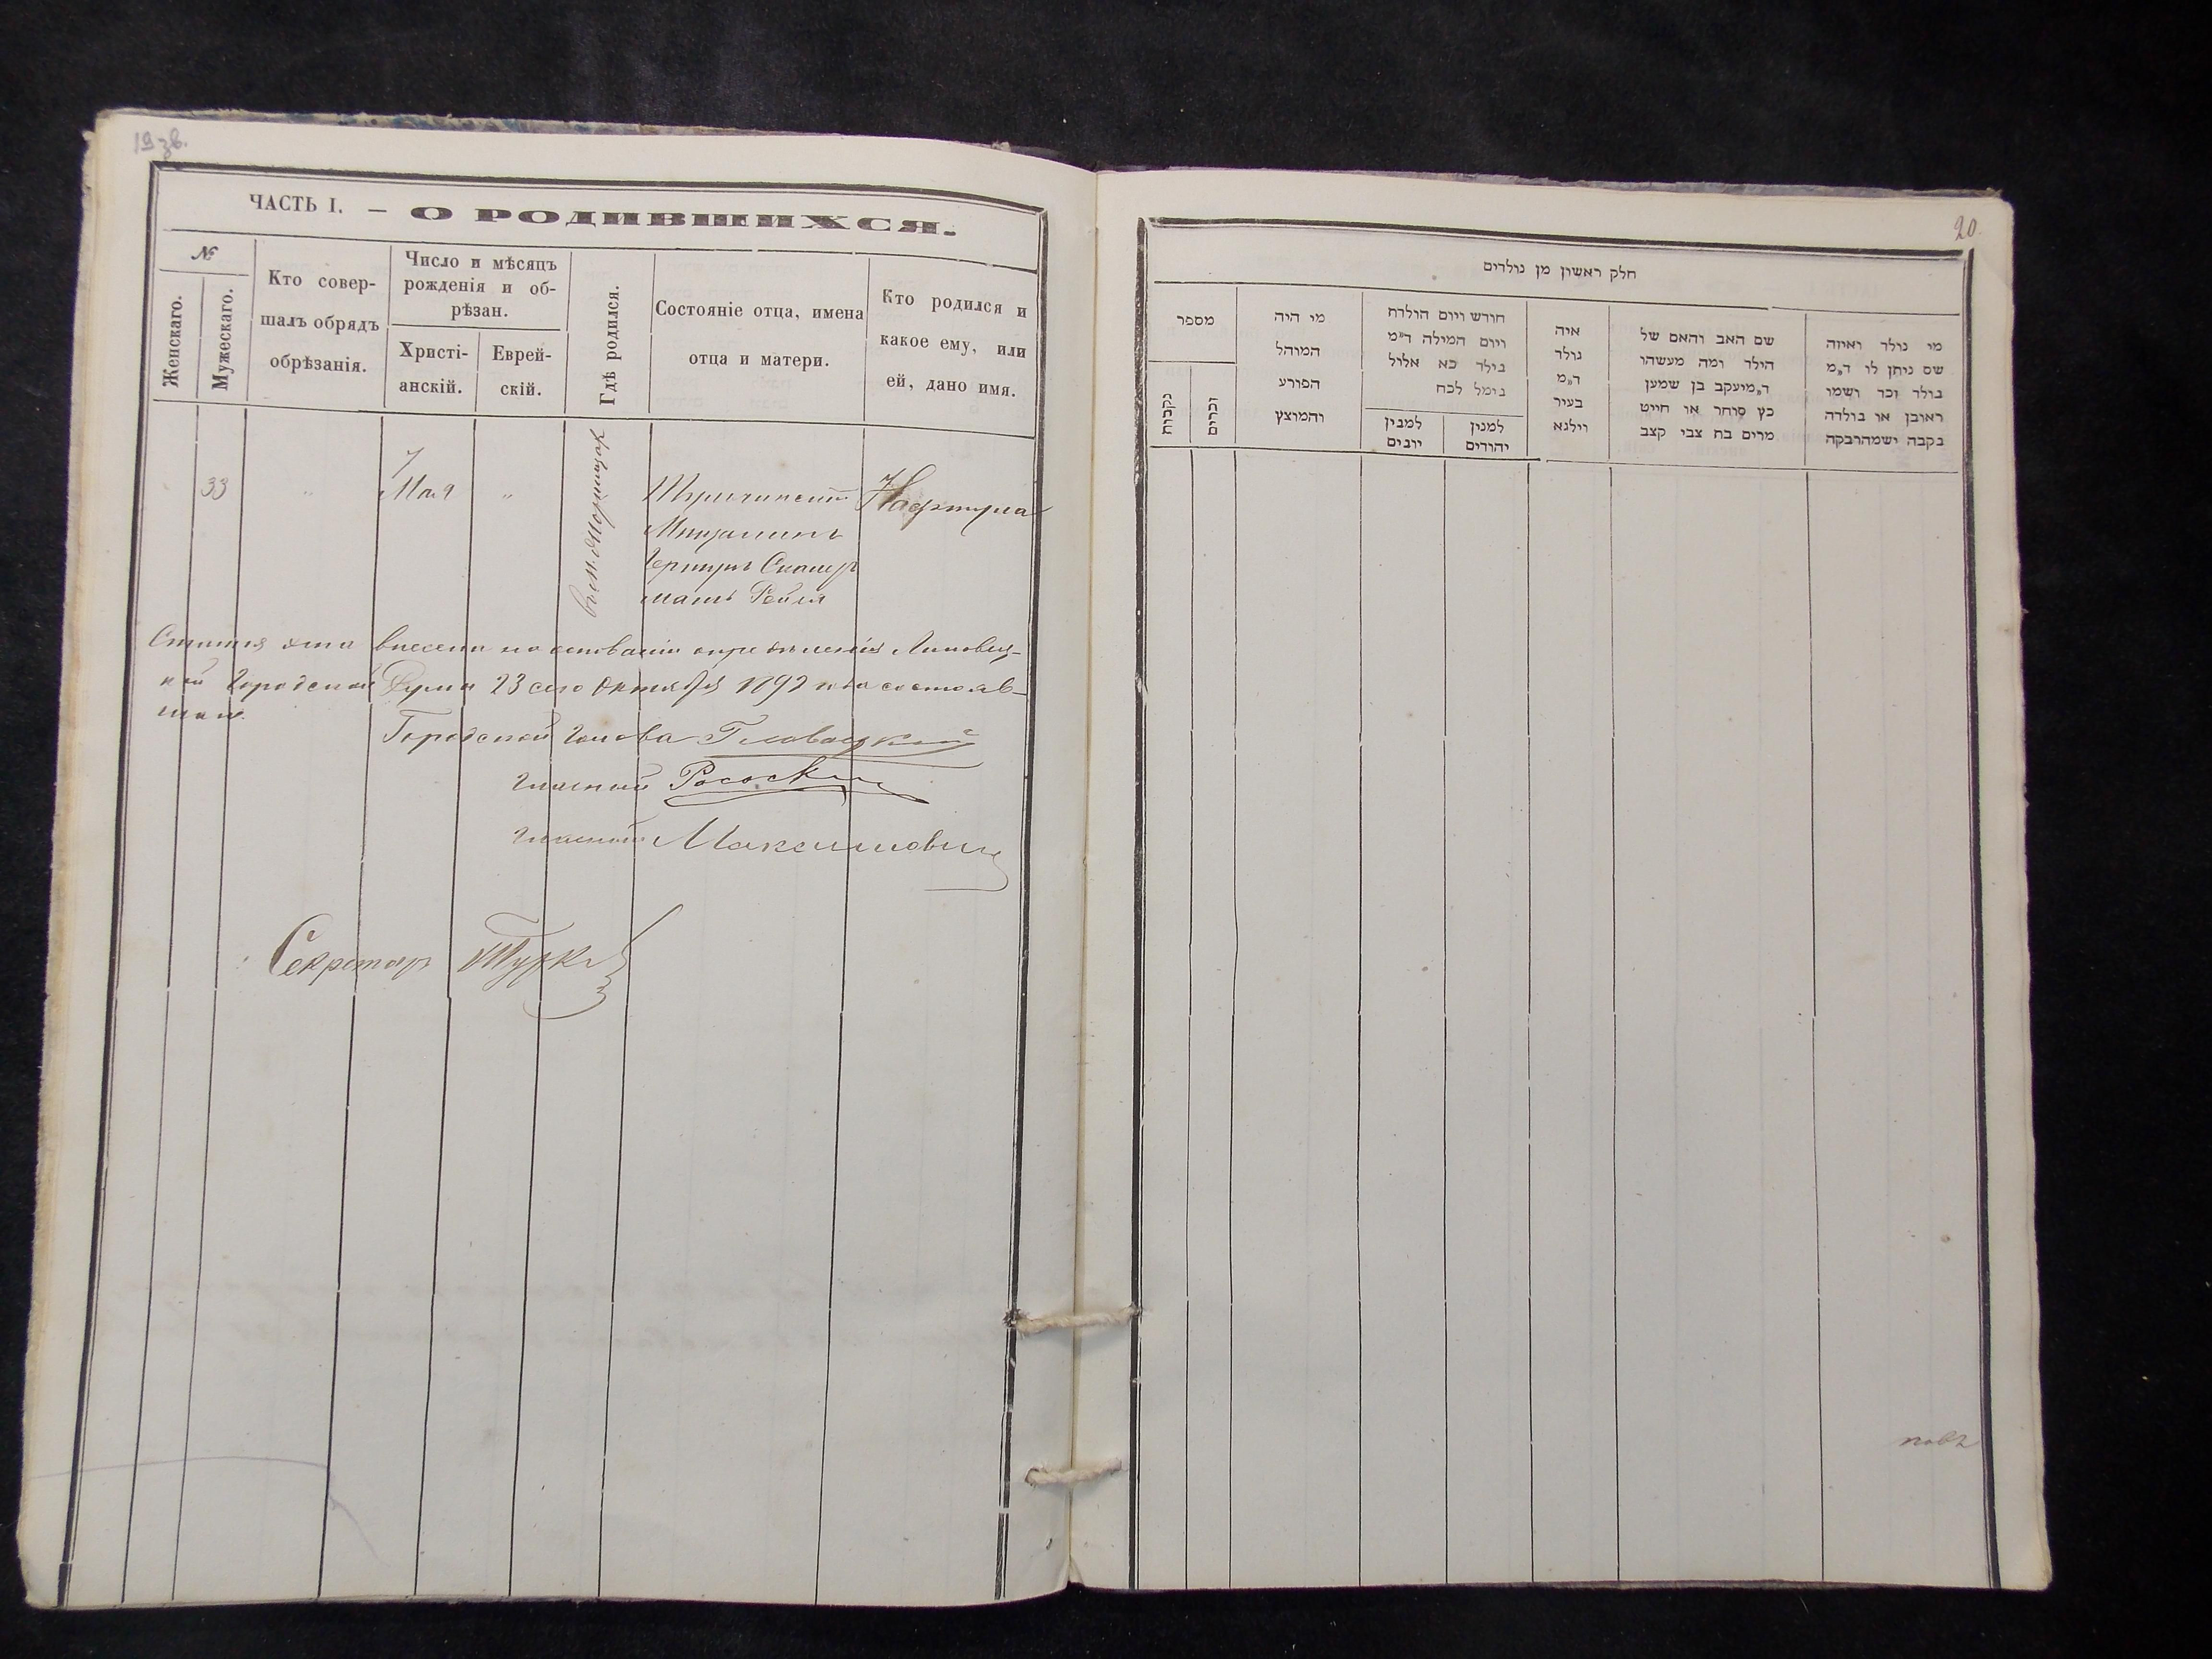 19 зв.
ЧАСТЬ I. — О РОДИВШИХСЯ.
№
Женскаго.
Мужескаго.
Кто совер-
шалъ обрядъ
обрѣзанія.
Число и мѣсяцъ
рожденія и об-
рѣзан.
Христі-
анскій.
Еврей-
скій.
Гдѣ родился.
Состояніе отца, имена
отца и матери.
Кто родился и
какое ему, или
ей, дано имя.
33
"
7
Мая
"
Мѣщанинъ
мать Рейзя
Статья эта внесена на основаніи опредѣленія Липовец-
кой Городской Думы 23 сего Октября 1892 года состояв-
Городской Голова Головацкій
Гласный Рососкій
Гласный Максимович
Секретарь
20
חלק ראשון מן נולדים
מספר
נקבות
זכרים
מי היה
המוהל
הפורע
והמוצץ
חודש ויום הולדת
ויום המילה ד״מ
נולד כא אלול
נימל לכח
למנין
יונים
למנין
יהודים
איה
נולד
ד״מ
בעיר
ווילנא
שם האב והאם של
הילד ומה מעשהו
ד״מ יעקב בן שמען
כץ סוחר או חייט
מרים בת צבי קצב
מי נולד ואיזה
שם ניתן לו ד״מ
נולד זכר ושמו
ראובן או נולדה
נקבה ושמה רבקה